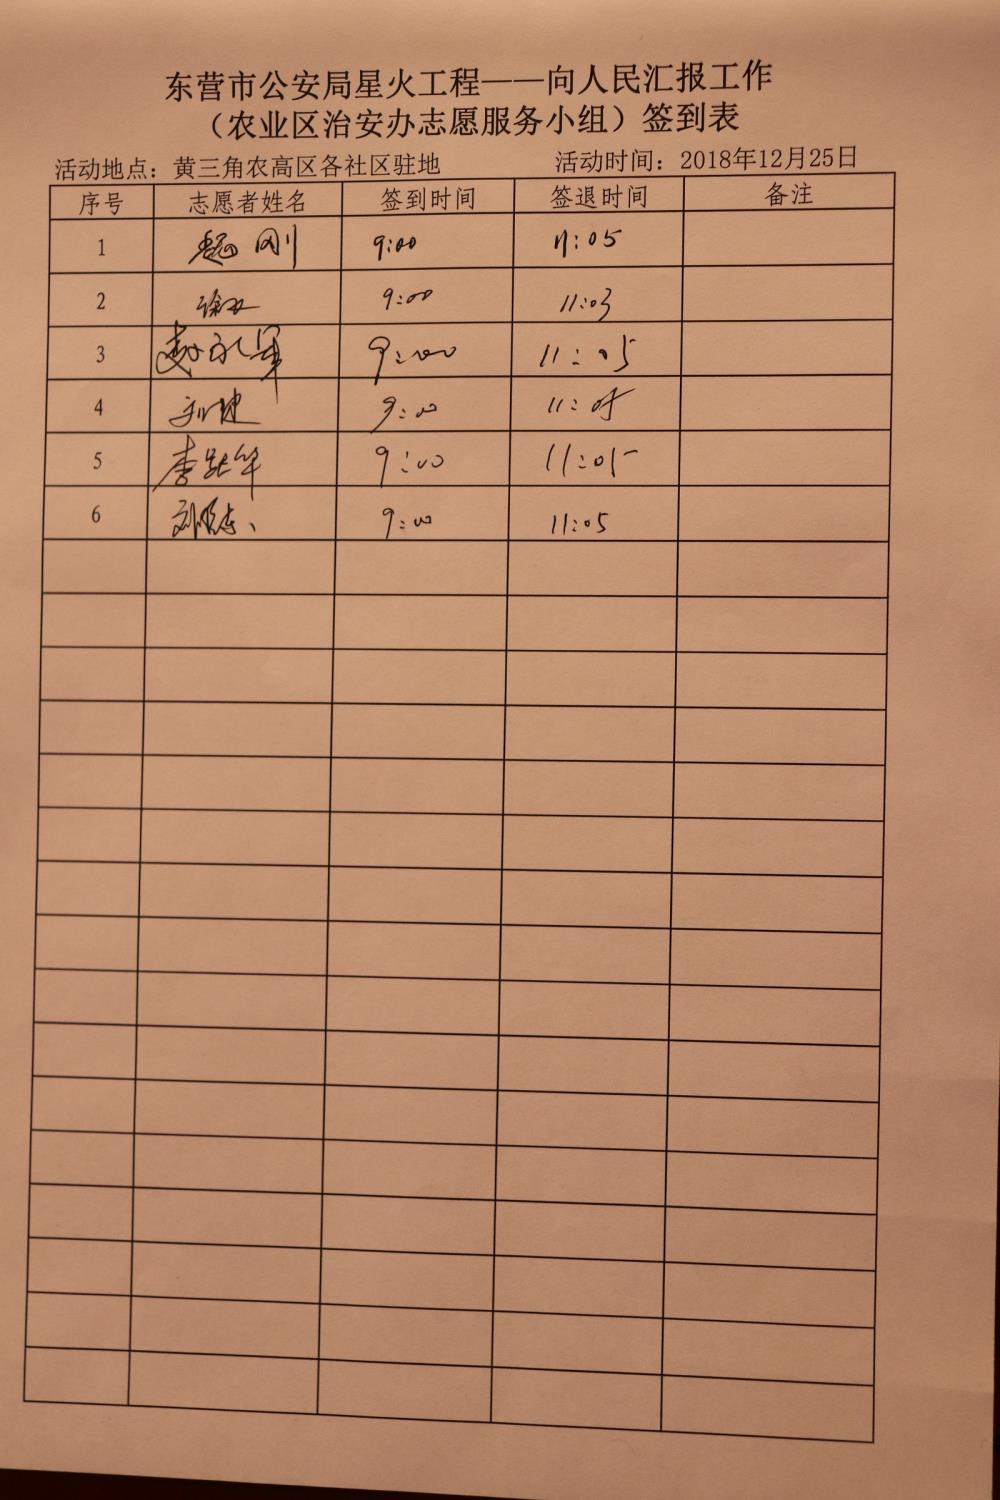 东营市公安局星火工程——向人民汇报工作
（农业区治安办志愿服务小组）签到表
活动地点：黄三角农高区各社区驻地 活动时间：2018年12月25日
序号 志愿者姓名 签到时间 签退时间 备注
1 魏刚 9:00 11:05
2 9:00 11:03
3 赵永军 9:00 11:05
4 刘建 9:00 11:05
5 李跃华 9:00 11:05
6 9:00 11:05